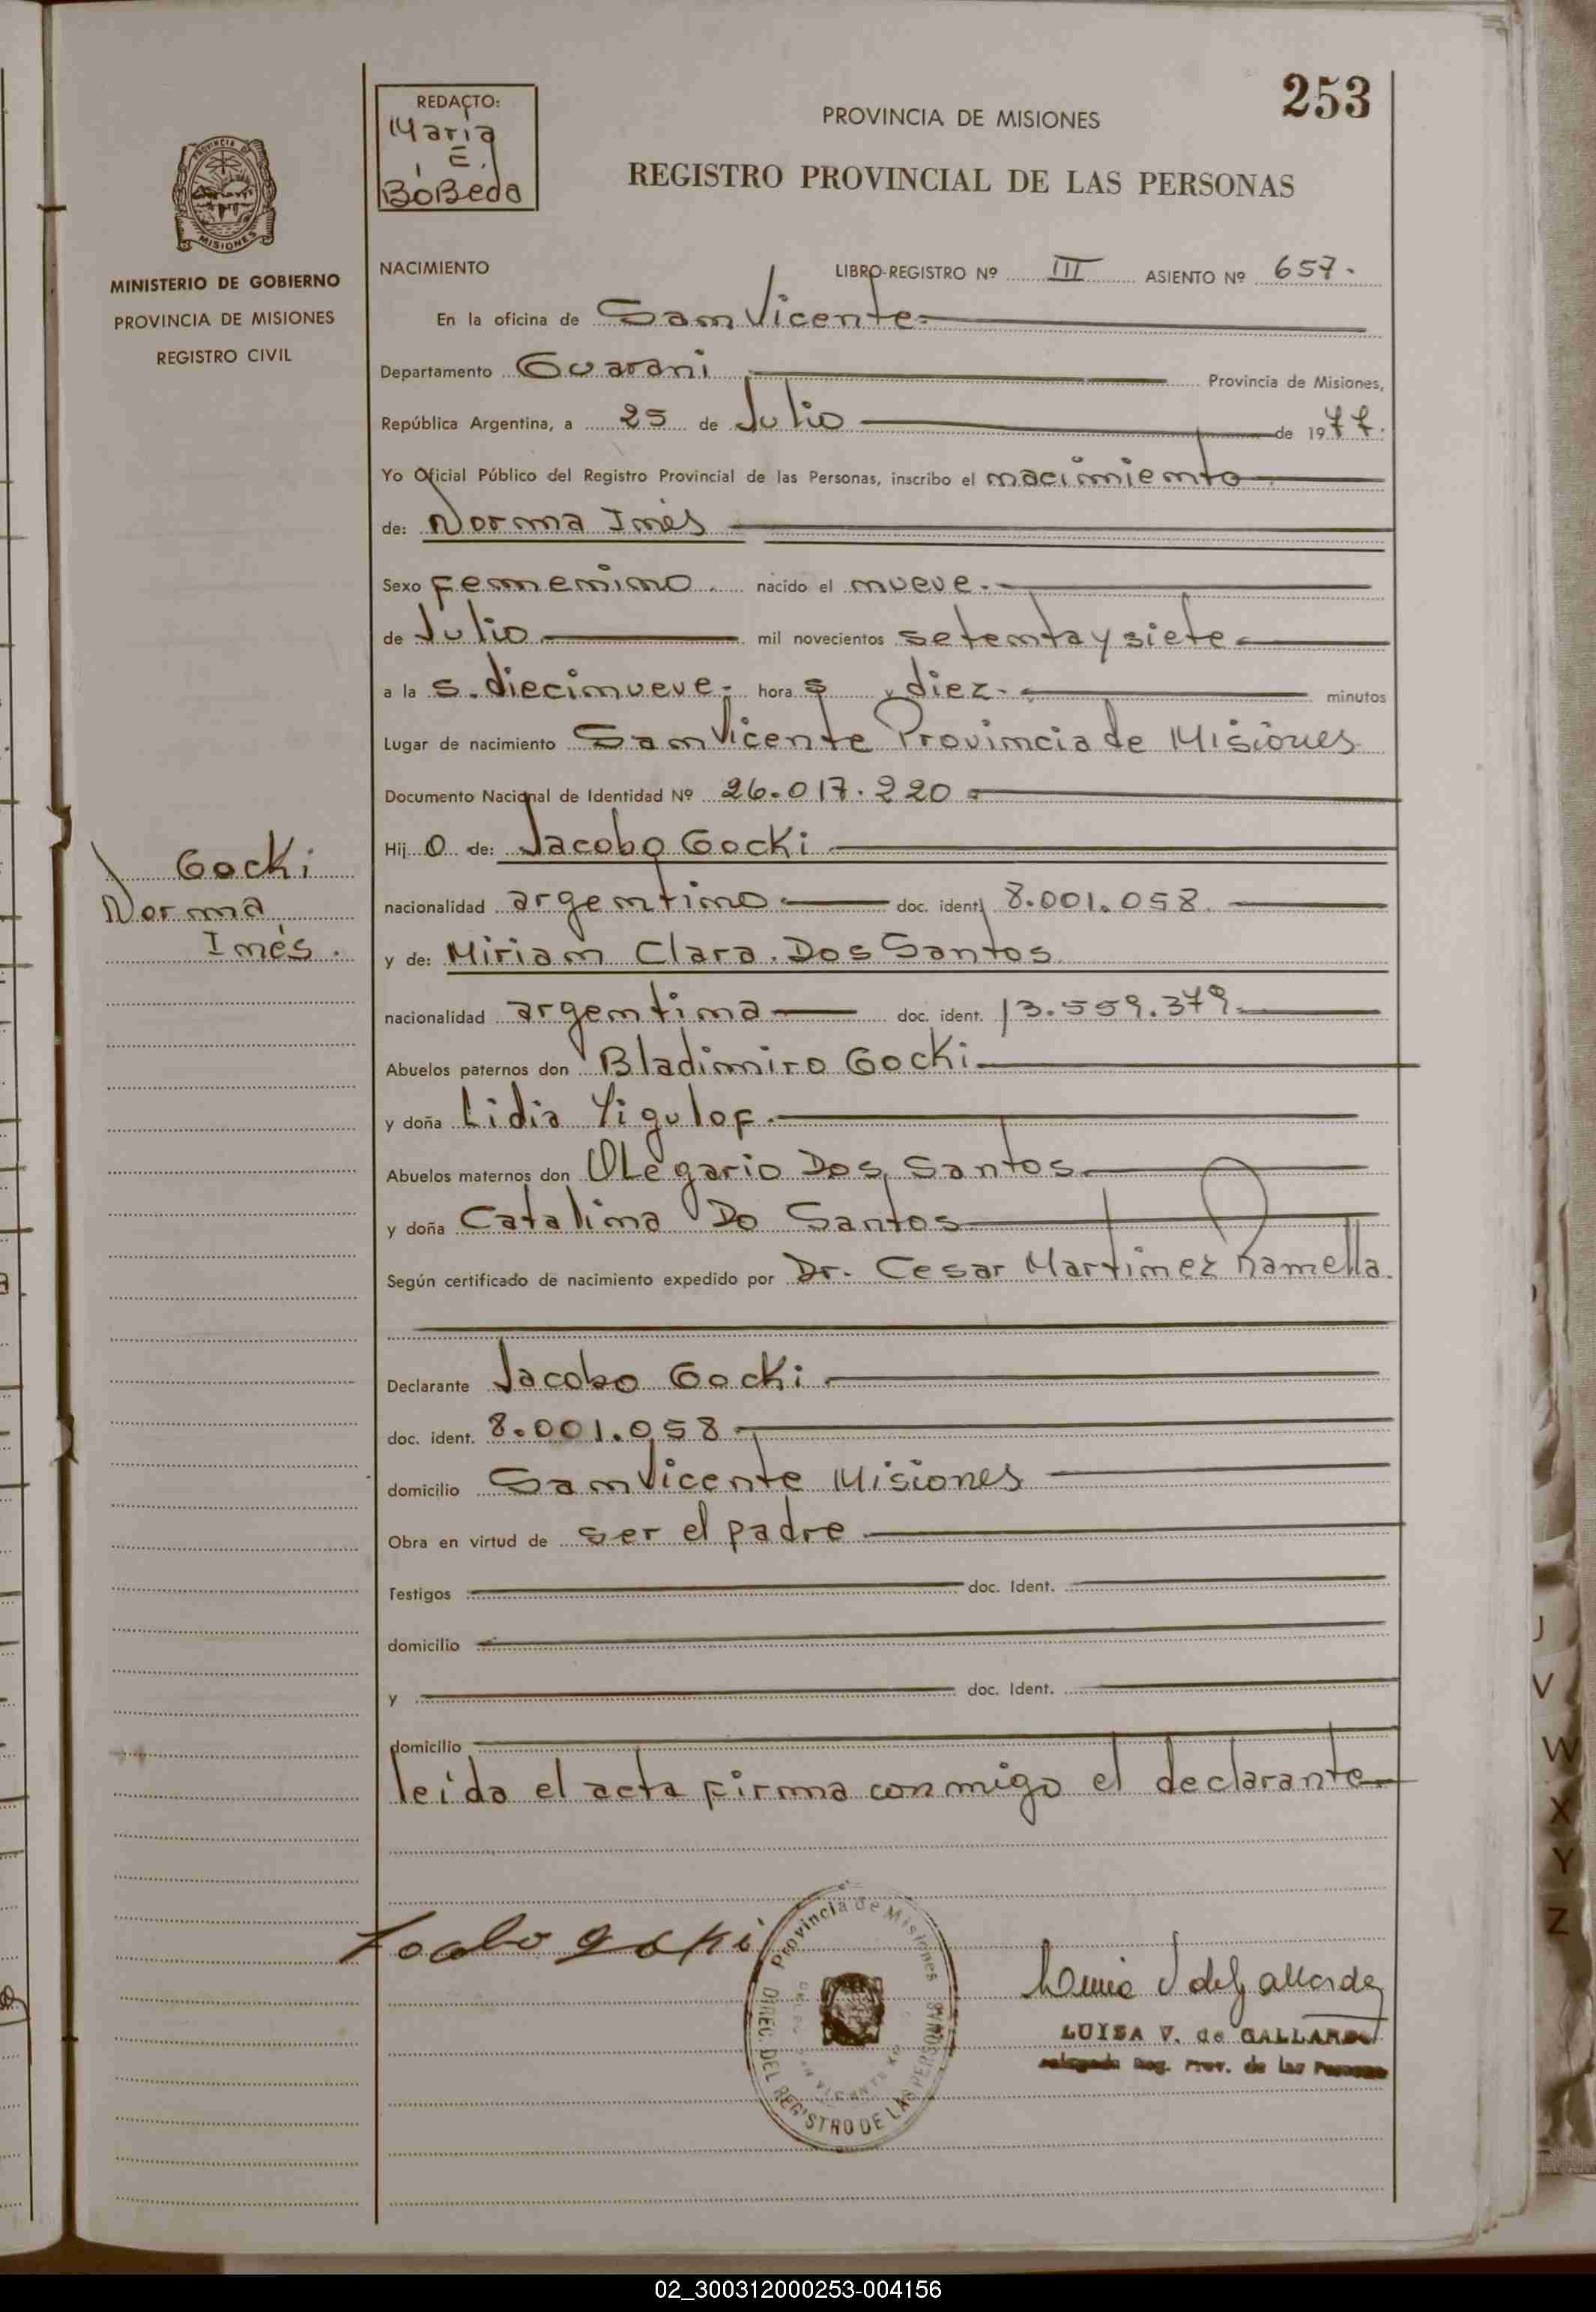 253
REDACTO:
Maria
E.
BoBeda
PROVINCIA DE MISIONES
REGISTRO PROVINCIAL DE LAS PERSONAS
MISIONES
MINISTERIO DE GOBIERNO
PROVINCIA DE MISIONES
REGISTRO CIVIL
NACIMIENTO LIBRO-REGISTRO Nº III ASIENTO Nº 657.
En la oficina de San Vicente
Departamento Guarani Provincia de Misiones,
República Argentina, a 25 de Julio de 1977.
Yo Oficial Público del Registro Provincial de las Personas, inscribo el nacimiento
de: Norma Inés
Sexo femenino nacido el nueve.
de Julio mil novecientos setenta y siete
a la s. diecinueve hora s y diez minutos
Lugar de nacimiento San Vicente Provincia de Misiones
Documento Nacional de Identidad Nº 26.017.220
Hij o de: Jacobo Gocki
Gocki
Norma
Inés.
nacionalidad argentino doc. ident. 8.001.058
y de: Miriam Clara. Dos Santos
nacionalidad argentina doc. ident. 13.559.379
Abuelos paternos don Bladimiro Gocki
y doña Lidia Yigulof.
Abuelos maternos don OLegario Dos Santos
y doña Catalina Do Santos
Según certificado de nacimiento expedido por Dr. Cesar Martinez Ramella
Declarante Jacobo Gocki
doc. ident. 8.001.058
domicilio San Vicente Misiones
Obra en virtud de ser el padre
Testigos doc. Ident.
domicilio
y doc. Ident.
domicilio
leída el acta firma conmigo el declarante
Provincia de Misiones
DIREC. DEL REGISTRO DE LAS PERSONAS
LUISA V. de GALLARDO
Reg. Prov. de las Personas
J
V
W
X
Y
Z
02_300312000253-004156